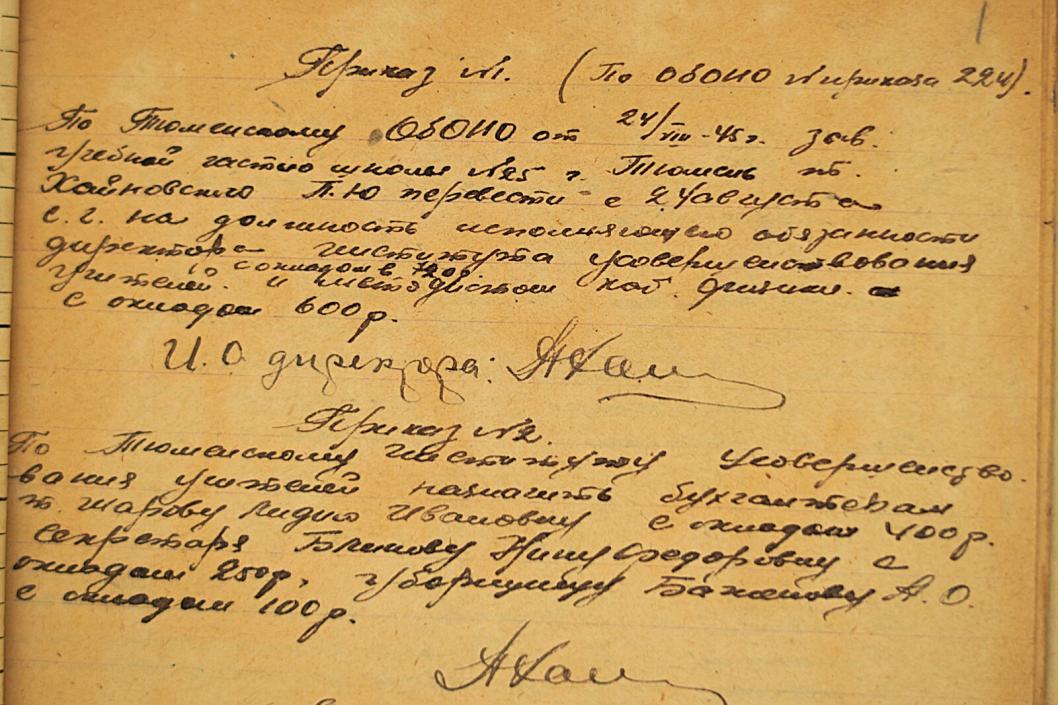 1
Приказ №1. (По ОБОНО № приказа 224).
По Тюменскому ОБОНО от 24/VIII-45 г. зав.
учебной частью школы №25 г. Тюмень т.
Хайновского П.Ю перевести с 24 августа
с.г. на должность исполняющего обязанности
директора института усовершенствования
с окладом в
учителей. и методистом каб. физики.
с окладом 600 р.
И.О. директора:
Приказ №2.
По Тюменскому институту усовершенство-
вания учителей назначить бухгалтером
т. Шарову Лидию Ивановну с окладом 400 р.
Секретаря Блинову Нину Федоровну с
окладом 250 р, уборщицу Баженову А.О.
с окладом 100 р.